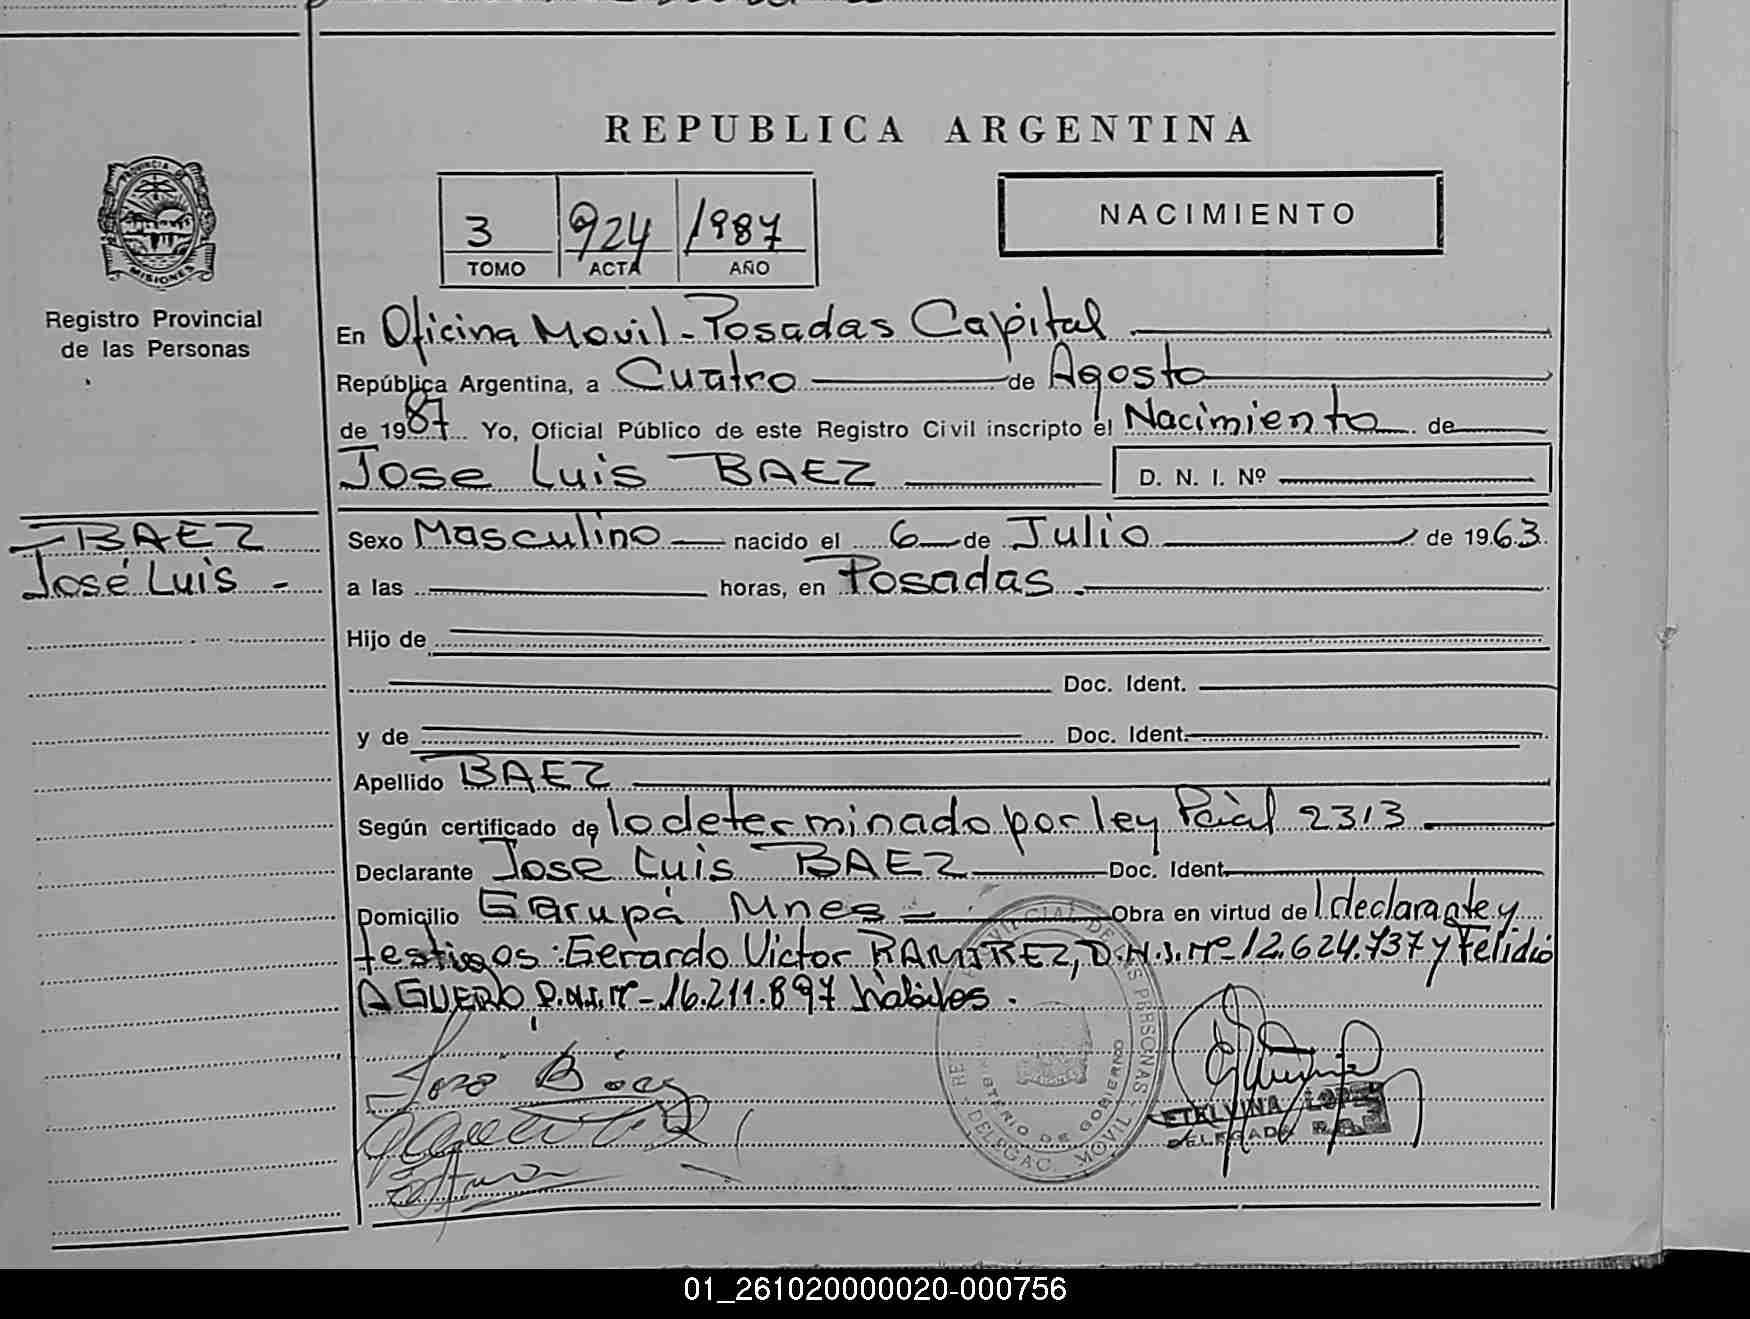 REPUBLICA ARGENTINA
PROVINCIA DE
MISIONES
Registro Provincial
de las Personas
3 924 1987
TOMO ACTA AÑO
NACIMIENTO
En Oficina Movil - Posadas Capital
República Argentina, a Cuatro de Agosto
de 1987 Yo, Oficial Público de este Registro Civil inscripto el Nacimiento de
Jose Luis BAEZ D. N. I. Nº
BAEZ
José Luis -
Sexo Masculino nacido el 6 de Julio de 1963.
a las horas, en Posadas
Hijo de
Doc. Ident.
y de Doc. Ident.
Apellido BAEZ
Según certificado de lo determinado por ley Pcial 2313
Declarante Jose Luis BAEZ Doc. Ident.
Domicilio Garupá Mnes Obra en virtud del declarante y
testigos: Gerardo Victor RAMIREZ, D.N.I. Nº - 12.624.737 y Felidio
AGUERO D.N.I. Nº - 16.211.897 hábiles.
José Báez
DE LAS PERSONAS
MINISTERIO DE GOBIERNO
DELEGAC. MOVIL
ETELVINA LOPEZ
DELEGADA
01_261020000020-000756